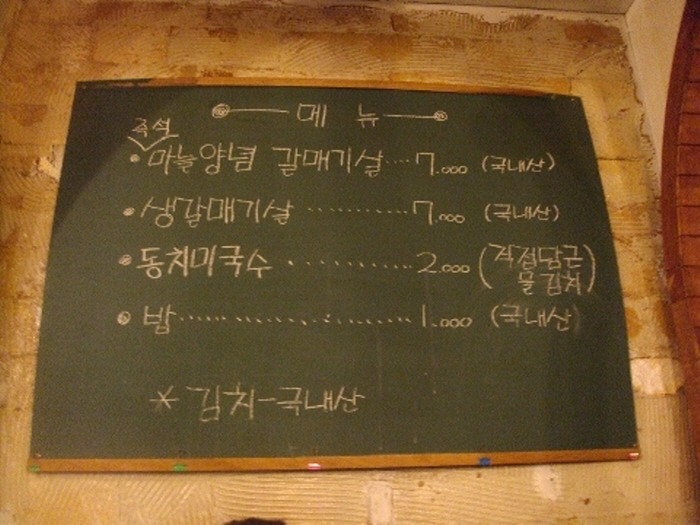 메 뉴
즉석
마늘양념 갈매기살 ... 7.000 (국내산)
생갈매기살 ......... 7.000 (국내산)
동치미국수 ........... 2.000 (직접담근 물김치)
밥 ........................ 1.000 (국내산)
* 김치-국내산